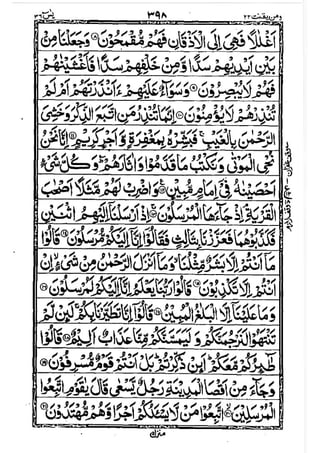 ومن يقنت ٢٢ ٣٩٨ يٰسٓ ٣٦
اَغْلٰلًا فَهِىَ اِلَى الْاَذْقَانِ فَهُمْ مُّقْمَحُوْنَ ۝ وَجَعَلْنَا مِنْۢ
بَيْنِ اَيْدِيْهِمْ سَدًّا وَّمِنْ خَلْفِهِمْ سَدًّا فَاَغْشَيْنٰهُمْ
فَهُمْ لَا يُبْصِرُوْنَ ۝ وَسَوَآءٌ عَلَيْهِمْ ءَاَنْذَرْتَهُمْ اَمْ لَمْ
تُنْذِرْهُمْ لَا يُؤْمِنُوْنَ ۝ اِنَّمَا تُنْذِرُ مَنِ اتَّبَعَ الذِّكْرَ وَخَشِىَ
الرَّحْمٰنَ بِالْغَيْبِ ۚ فَبَشِّرْهُ بِمَغْفِرَةٍ وَّاَجْرٍ كَرِيْمٍ ۝ اِنَّا نَحْنُ
نُحْىِ الْمَوْتٰى وَنَكْتُبُ مَا قَدَّمُوْا وَاٰثَارَهُمْ ۚ وَكُلَّ شَىْءٍ
اَحْصَيْنٰهُ فِىْٓ اِمَامٍ مُّبِيْنٍ ۝ وَاضْرِبْ لَهُمْ مَّثَلًا اَصْحٰبَ
الْقَرْيَةِ ۘ اِذْ جَآءَهَا الْمُرْسَلُوْنَ ۝ اِذْ اَرْسَلْنَآ اِلَيْهِمُ اثْنَيْنِ
فَكَذَّبُوْهُمَا فَعَزَّزْنَا بِثَالِثٍ فَقَالُوْٓا اِنَّآ اِلَيْكُمْ مُّرْسَلُوْنَ ۝ قَالُوْا
مَآ اَنْتُمْ اِلَّا بَشَرٌ مِّثْلُنَا ۙ وَمَآ اَنْزَلَ الرَّحْمٰنُ مِنْ شَىْءٍ ۙ اِنْ
اَنْتُمْ اِلَّا تَكْذِبُوْنَ ۝ قَالُوْا رَبُّنَا يَعْلَمُ اِنَّآ اِلَيْكُمْ لَمُرْسَلُوْنَ ۝
وَمَا عَلَيْنَآ اِلَّا الْبَلٰغُ الْمُبِيْنُ ۝ قَالُوْٓا اِنَّا تَطَيَّرْنَا بِكُمْ ۚ لَئِنْ لَّمْ
تَنْتَهُوْا لَنَرْجُمَنَّكُمْ وَلَيَمَسَّنَّكُمْ مِّنَّا عَذَابٌ اَلِيْمٌ ۝ قَالُوْا
طَآئِرُكُمْ مَّعَكُمْ ۚ اَئِنْ ذُكِّرْتُمْ ۚ بَلْ اَنْتُمْ قَوْمٌ مُّسْرِفُوْنَ ۝
وَجَآءَ مِنْ اَقْصَا الْمَدِيْنَةِ رَجُلٌ يَّسْعٰى قَالَ يٰقَوْمِ اتَّبِعُوا
الْمُرْسَلِيْنَ ۝ اتَّبِعُوْا مَنْ لَّا يَسْئَلُكُمْ اَجْرًا وَّهُمْ مُّهْتَدُوْنَ ۝